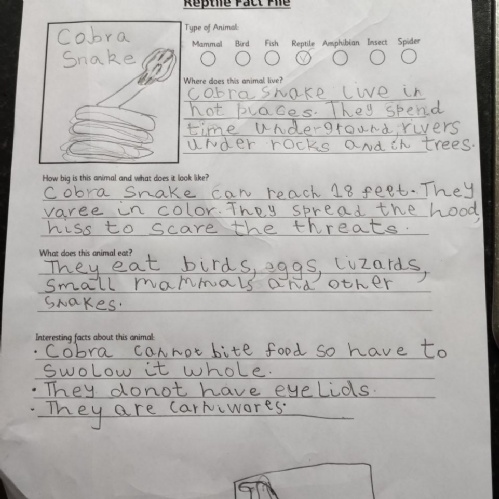 Reptile Fact File
Cobra
Snake
Type of Animal:
Mammal Bird Fish Reptile Amphibian Insect Spider
Where does this animal live?
Cobra snake live in
hot places. They spend
time underground, rivers
under rocks and in trees.
How big is this animal and what does it look like?
Cobra snake can reach 18 feet. They
varee in color. They spread the hood,
hiss to scare the threats.
What does this animal eat?
They eat birds, eggs, lizards,
small mammals and other
snakes.
Interesting facts about this animal:
• Cobra cannot bite food so have to
swolow it whole.
• They donot have eyelids.
• They are carniwores.